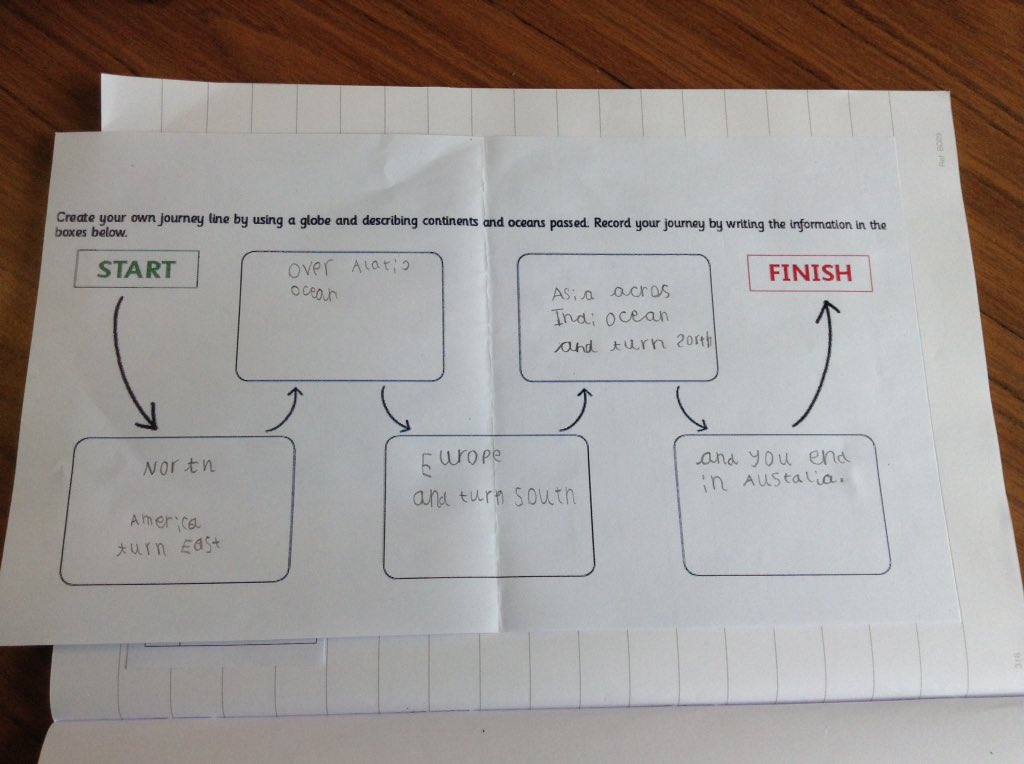 Create your own journey line by using a globe and describing continents and oceans passed. Record your journey by writing the information in the
boxes below.
START
North
America
turn East
over Alatic
ocean
Europe
and turn south
Asia acros
Indi ocean
and turn
and you end
in Australia.
FINISH